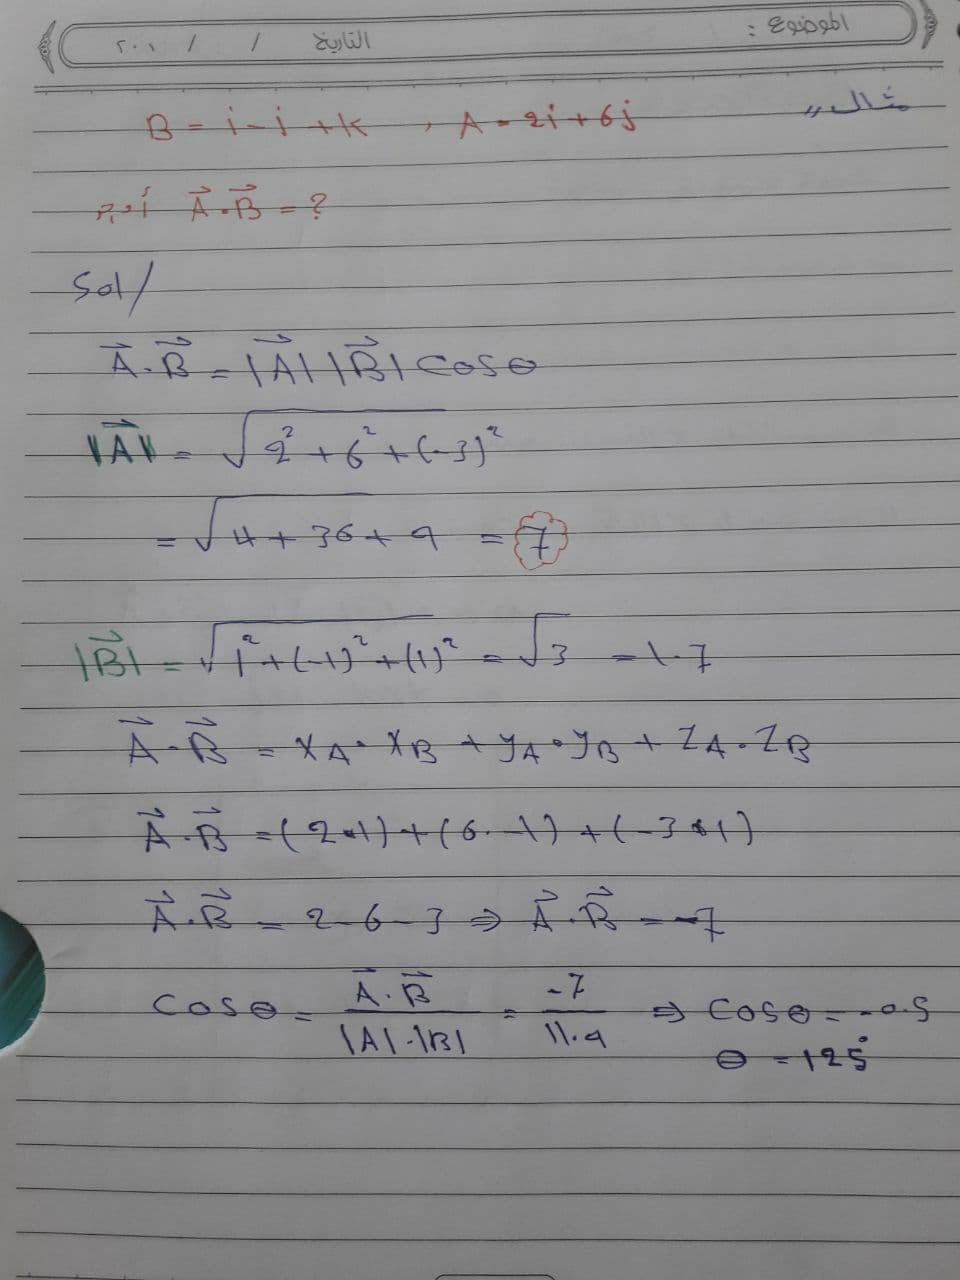 الموضوع :
التاريخ / / ٢٠٠١
مثال,,
B = i - j + k , A = 2i + 6j
أوجد A⃗.B⃗ = ?
Sol/
A⃗.B⃗ = |A⃗| |B⃗| cosθ
|A⃗| = √2² + 6² + (-3)²
= √4 + 36 + 9 = 7
|B⃗| = √1² + (-1)² + (1)² = √3 = 1.7
A⃗.B⃗ = XA.XB + YA.YB + ZA.ZB
A⃗.B⃗ = (2.1) + (6.-1) + (-3.1)
A⃗.B⃗ = 2-6-3 ⇒ A⃗.B⃗ = -7
Cosθ = A⃗.B⃗ / |A|.|B| = -7 / 11.9 ⇒ Cosθ = -0.5
θ = 125°